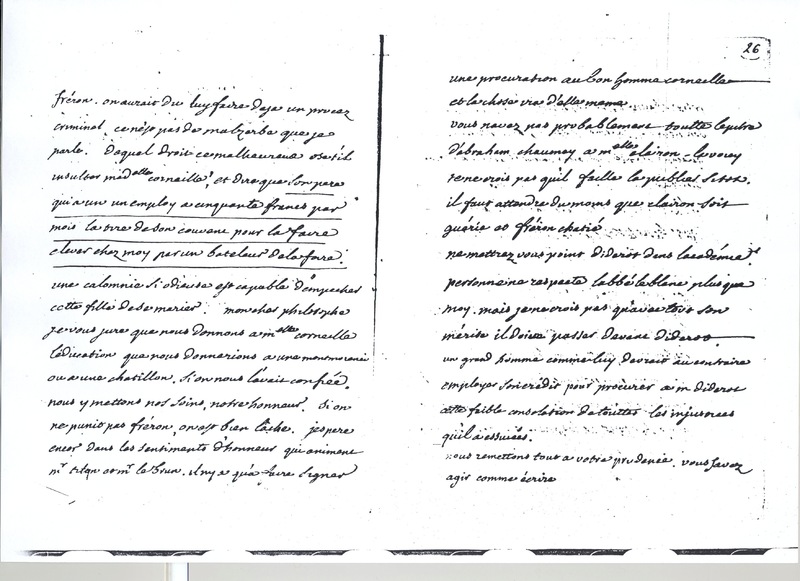 fréron. on aurait du luy faire deja un procez
criminel. ce nest pas de malzerbe que je
parle. de quel droit ce malheureux ose til
insulter mad^elle corneille, et dire que son pere
qui a un un employ a cinquante francs par
mois la tire de son couvent pour la faire
elever chez moy par un bateleur de la foire.
une calomnie si odieuse est capable d'empecher
cette fille de se marier. mon cher philosophe
je vous jure que nous donnons a m^elle corneille
l'education que nous donnerions a une monmorenci
ou a une chatillon, si on nous l'avait confiée.
nous y mettons nos soins, notre honneur. si on
ne punit pas fréron, on est bien lache. jespere
encor dans les sentiments d'honneur qui animent
m^r titon et m^r le brun. il ny a qu'a faire signer
26
une procuration au bon homme corneille
et la chose ira d'elle meme
vous navez pas probablement toutte lepitre
d'abraham chaumey a m^elle clairon. la voicy
je ne crois pas quil faille la publier si tost.
il faut attendre du moins que clairon soit
guérie et fréron chatié
ne mettrez vous point diderot dans lacadémie?
personne ne respecte labbé le blanc plus que
moy. mais je ne crois pas qu'avec tout son
mérite il doive passer devant diderot
un grand homme comme luy devrait au contraire
employer son crédit pour procurer a m diderot
cette faible consolation de touttes les injustices
quil a essuiées.
nous remettons tout a votre prudence. vous savez
agir comme écrire